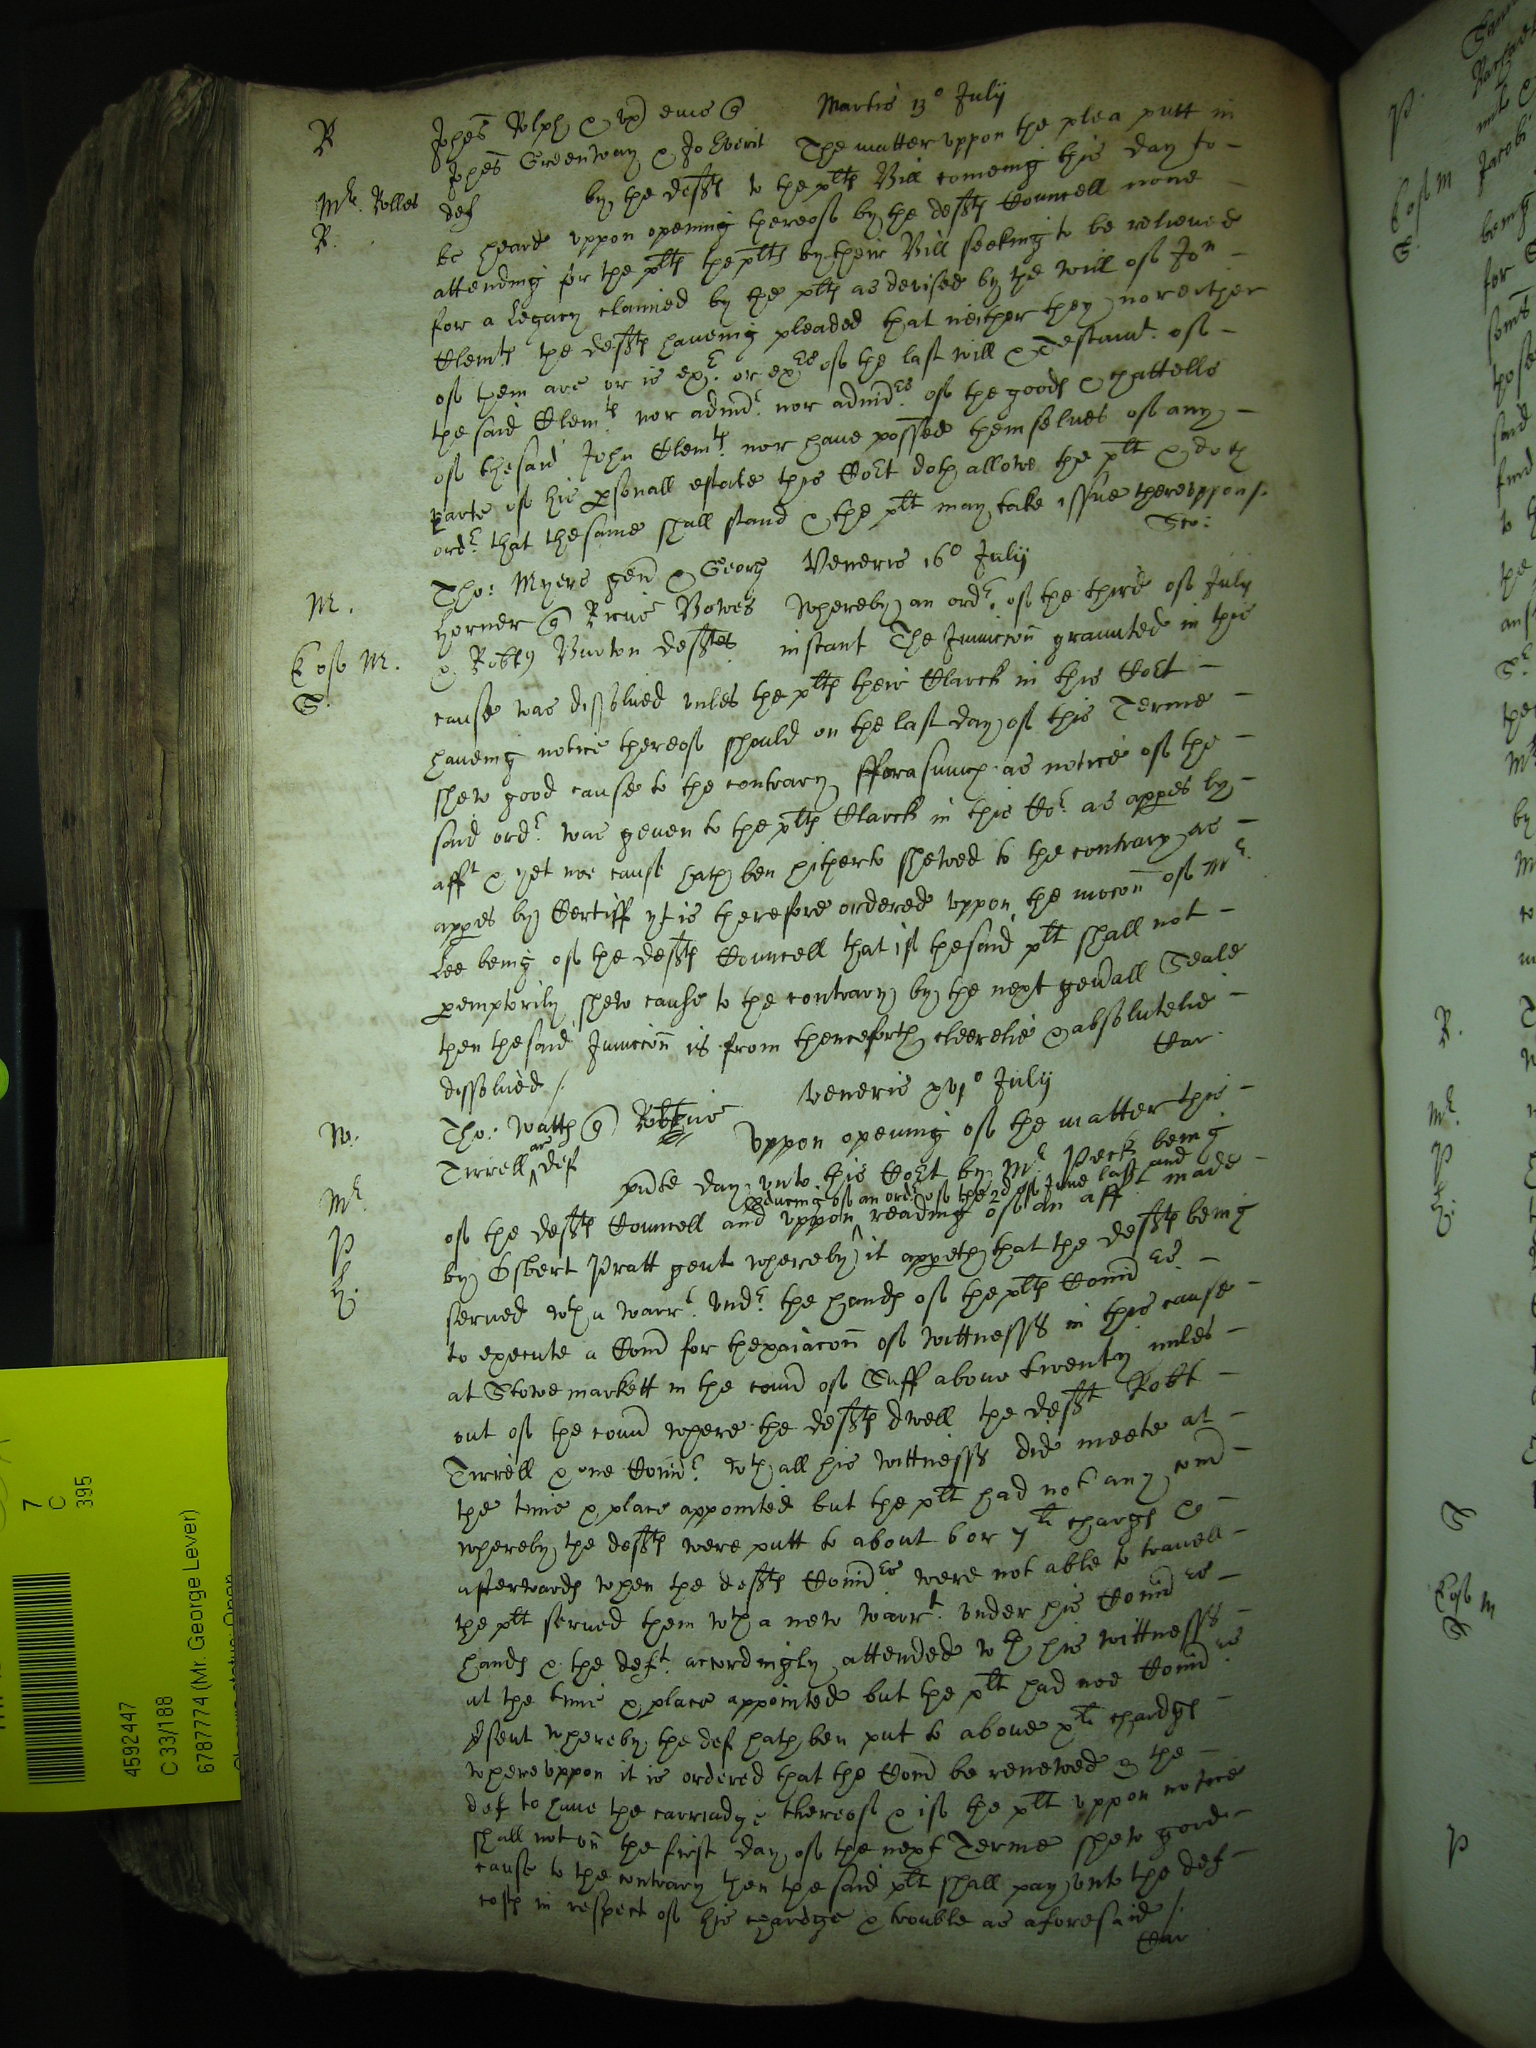 R
Johes Rolph & ux eius q
Martis 13° July
Johes Greenway & Jo Everit The matter uppon the plea putt in
Mr. Rolles
def by the deftes to the pltes Bill comeing this day to
R.
be heard uppon opening thereof by the deftes Councell none
attending for the pltes the pltes by their Bill seeking to be relieved
for a Legacy claimed by the pltes as devised by the will of Jon
Clemtes the deftes haveing pleaded that neither they nor either
of them are or is exr. or exrs of the last will & Testamt. of
the said Clemtes nor admr. nor admrs. of the goodes & chattells
of the said John Clemtes. nor have possed themselves of any
parte of his psonall estate this Cort doth allowe the plt & doth
ordr. that the same shall stand & the plt may take issue thereuppon.
Sco:
M.
Tho: Myers gen & Georg Veneris 16° July
Horner q Ricus Bowes Whereby an ordr. of the third of July
Exof M.
& Robtus Burton deftes. instant The Injuncion graunted in this
S.
cause was dissolved unles the pltes their Clarck in this Cort
haveing notice thereof should on the last day of this Terme
shew good cause to the contrary fforasmuch as notice of the
said ordr. was geven to the pltes Clarck in this Cor. as apps by
afft & yet noe cause hath ben hitherto shewed to the contrary as
apps by Certiff yt is therefore ordered uppon the mocon of Mr.
Lee being of the deftes Councell that if the said plt shall not
pemptorily shew cause to the contrary by the next genall Seale
then the said Injuncion is from thenceforth cleerelie & absolutelie
dissolved /.
Car
W.
Veneris xvj° July
Tho: Watts q Robtus
Tirrell ar def
Uppon opening of the matter this
Mr
pnte day unto this Cort by Mr Peck being
hearing of an ordr of the 2d of June last and
of the deftes Councell and uppon reading of an afft made
P
by Osbert Pratt gent whereby it appeth that the deftes being
H.
served wth a warrt. undr. the handes of the pltes Comrs.
to execute a Com for thexaiacon of wittnesses in this cause
at Stowemarkett in the coun of Suff above twenty miles
out of the coun where the deftes dwell the deft Robt
Tirrell & one Comr. wth all his wittnesses did meete at
the time & place appointed but the plt had not any com
whereby the deftes were putt to about 6 or 7li charges &
afterwardes when the deftes Comrs were not able to travell
the plt served them wth a new warrt. under his Comrs
handes & the deft. accordingly attended wth his wittnesses
at the time & place appointed but the plt had noe Comrs
psent whereby the def hath ben put to above xli chardges
whereuppon it is ordered that the Com be renewed & the
def to have the carriadge thereof & if the plt uppon notice
shall not on the first day of the next Terme shew good
cause to the contrary then the said plt shall pay unto the def
costes in respect of his chardge & trouble as aforesaid /.
Car
7
C
395
4592447
C 33/188
67877774 (Mr. George Lever)
P.
Exof M
S.
R.
Mr.
P
H.
S
Exof M
S
P